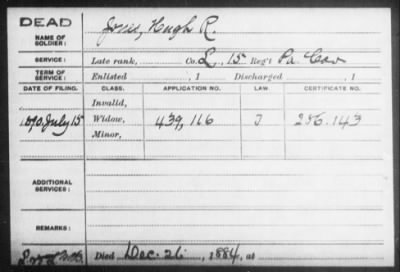 DEAD
NAME OF SOLDIER: Jones, Hugh R.
SERVICE: Late rank, Co. L, 15 Reg't Pa. Cav
TERM OF SERVICE: Enlisted , 1 Discharged , 1
DATE OF FILING. CLASS. APPLICATION NO. LAW. CERTIFICATE NO.
Invalid,
July 15 Widow, 439,116 J 286.143
Minor,
ADDITIONAL SERVICES:
REMARKS:
Died Dec. 26, 1884, at